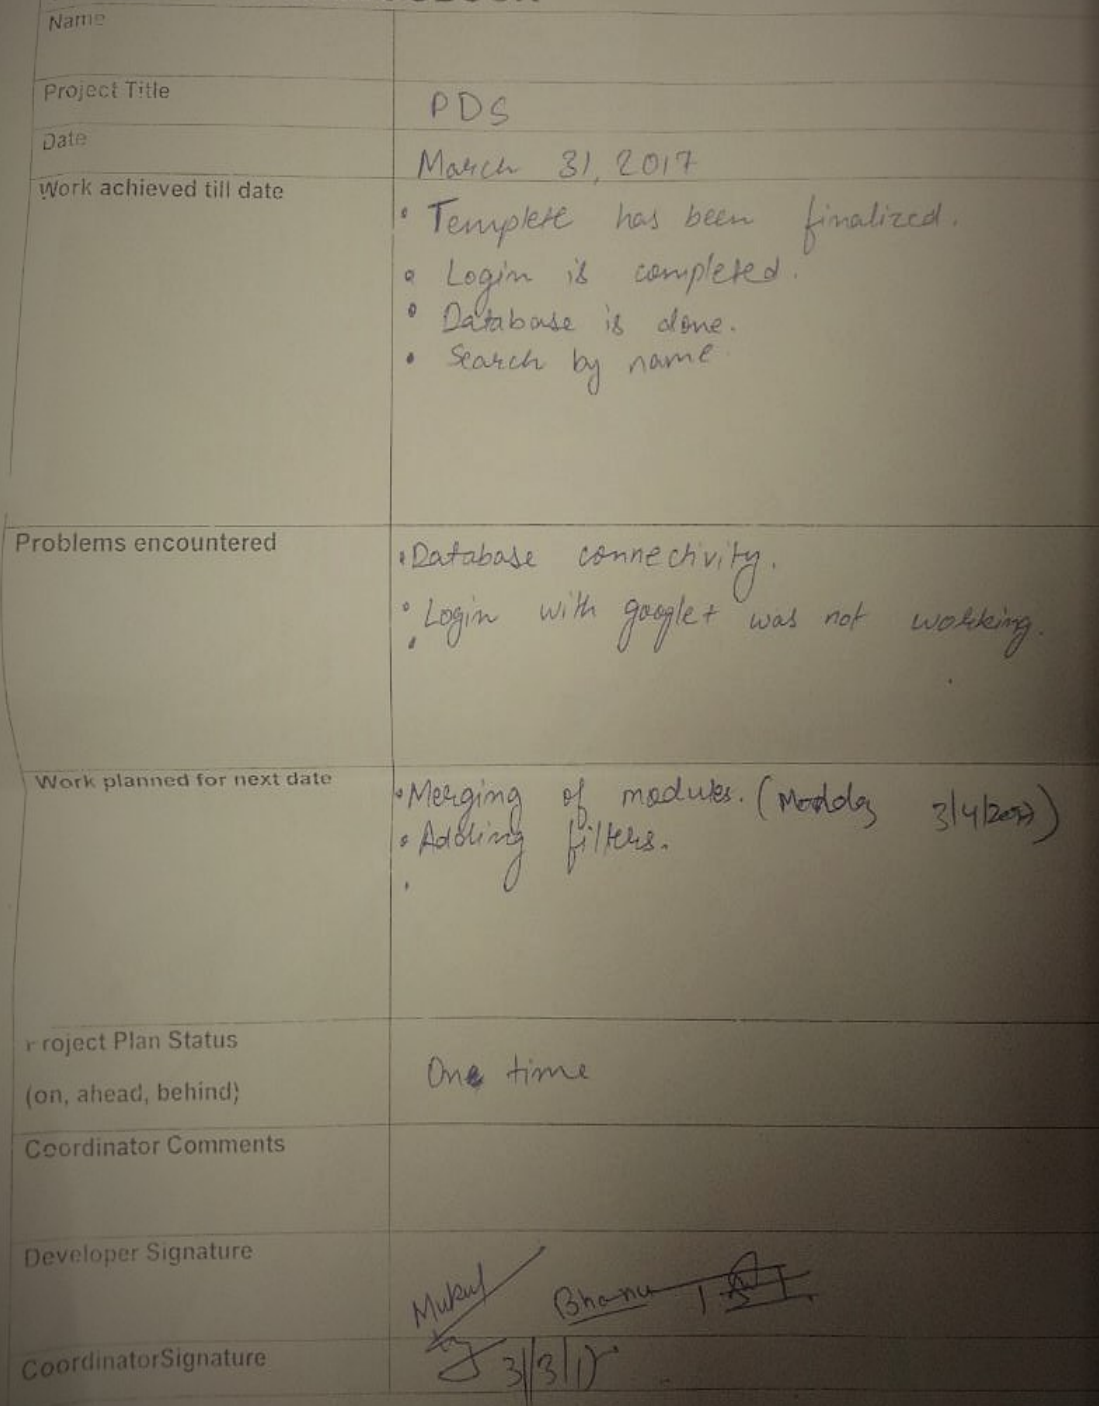 Name
Project Title
PDS
Date
March 31, 2017
Work achieved till date
• Templete has been finalized.
• Login is completed.
• Database is done.
• Search by name
Problems encountered
• Database connectivity.
• Login with google+ was not working.
•
Work planned for next date
• Merging of modules. ( 3/4/2017)
• Adding filters.
•
roject Plan Status
(on, ahead, behind)
One time
Coordinator Comments
Developer Signature
Mukul Bhanu
CoordinatorSignature
31/3/17